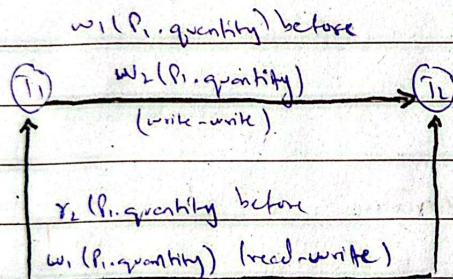 w1(P1.quantity) before
T1 w2(P1.quantity) T2
(write-write)
r2(P1.quantity before
w1(P1.quantity) (read-write)